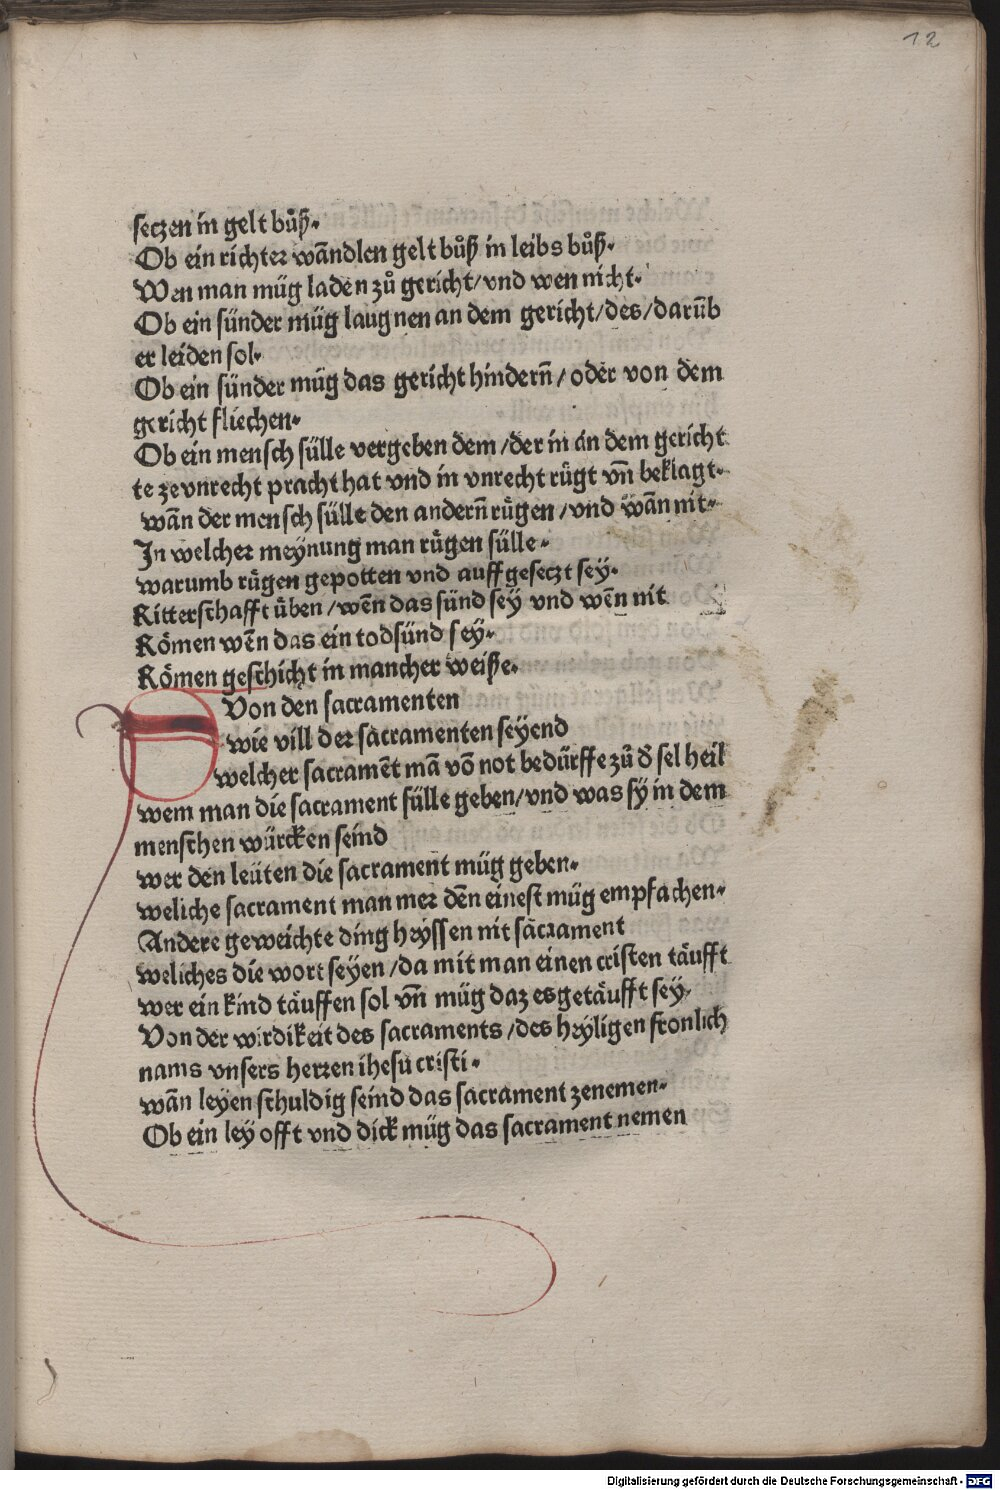 12
seczen in gelt bůß.
Ob ein richter wãndlen gelt bůß in leibs bůß.
Wen man müg laden zů gericht/vnd wen nicht.
Ob ein sünder müg laugnen an dem gericht/des/darũb
er leiden sol.
Ob ein sünder müg das gericht hindern̄/oder von dem
gericht fliechen.
Ob ein mensch sülle vergeben dem/der in an dem gericht
te ze vnrecht pracht hat vnd in vnrecht rügt vn̄ beklagt.
wãn der mensch sülle den andern̄ rügen/vnd wãn nit.
In welcher meynung man rügen sülle.
warumb rügen gepotten vnd auff geseczt sey.
Ritterschafft üben/wẽn das sünd sey vnd wẽn nit
Römen wẽn das ein todsünd sey.
Römen geschicht in mancher weiße.
Von den sacramenten
wie vill der sacramenten seyend
welcher sacramẽt mã võ not bedürffe zů đ sel heil
wem man die sacrament sülle geben/vnd was sy in dem
menschen würcken seind
wer den leüten die sacrament müg geben.
weliche sacrament man mer dẽn einest müg empfachen.
Andere geweichte ding heyssen nit sacrament
weliches die wort seyen/da mit man einen cristen täufft
wer ein kind täuffen sol vn̄ müg daz es getäufft sey.
Von der wirdikeit des sacraments/des heyligen fronlich
nams vnsers herren ihesu cristi.
wãn leyen schuldig seind das sacrament zenemen.
Ob ein ley offt vnd dick müg das sacrament nemen
Digitalisierung gefördert durch die Deutsche Forschungsgemeinschaft - DFG